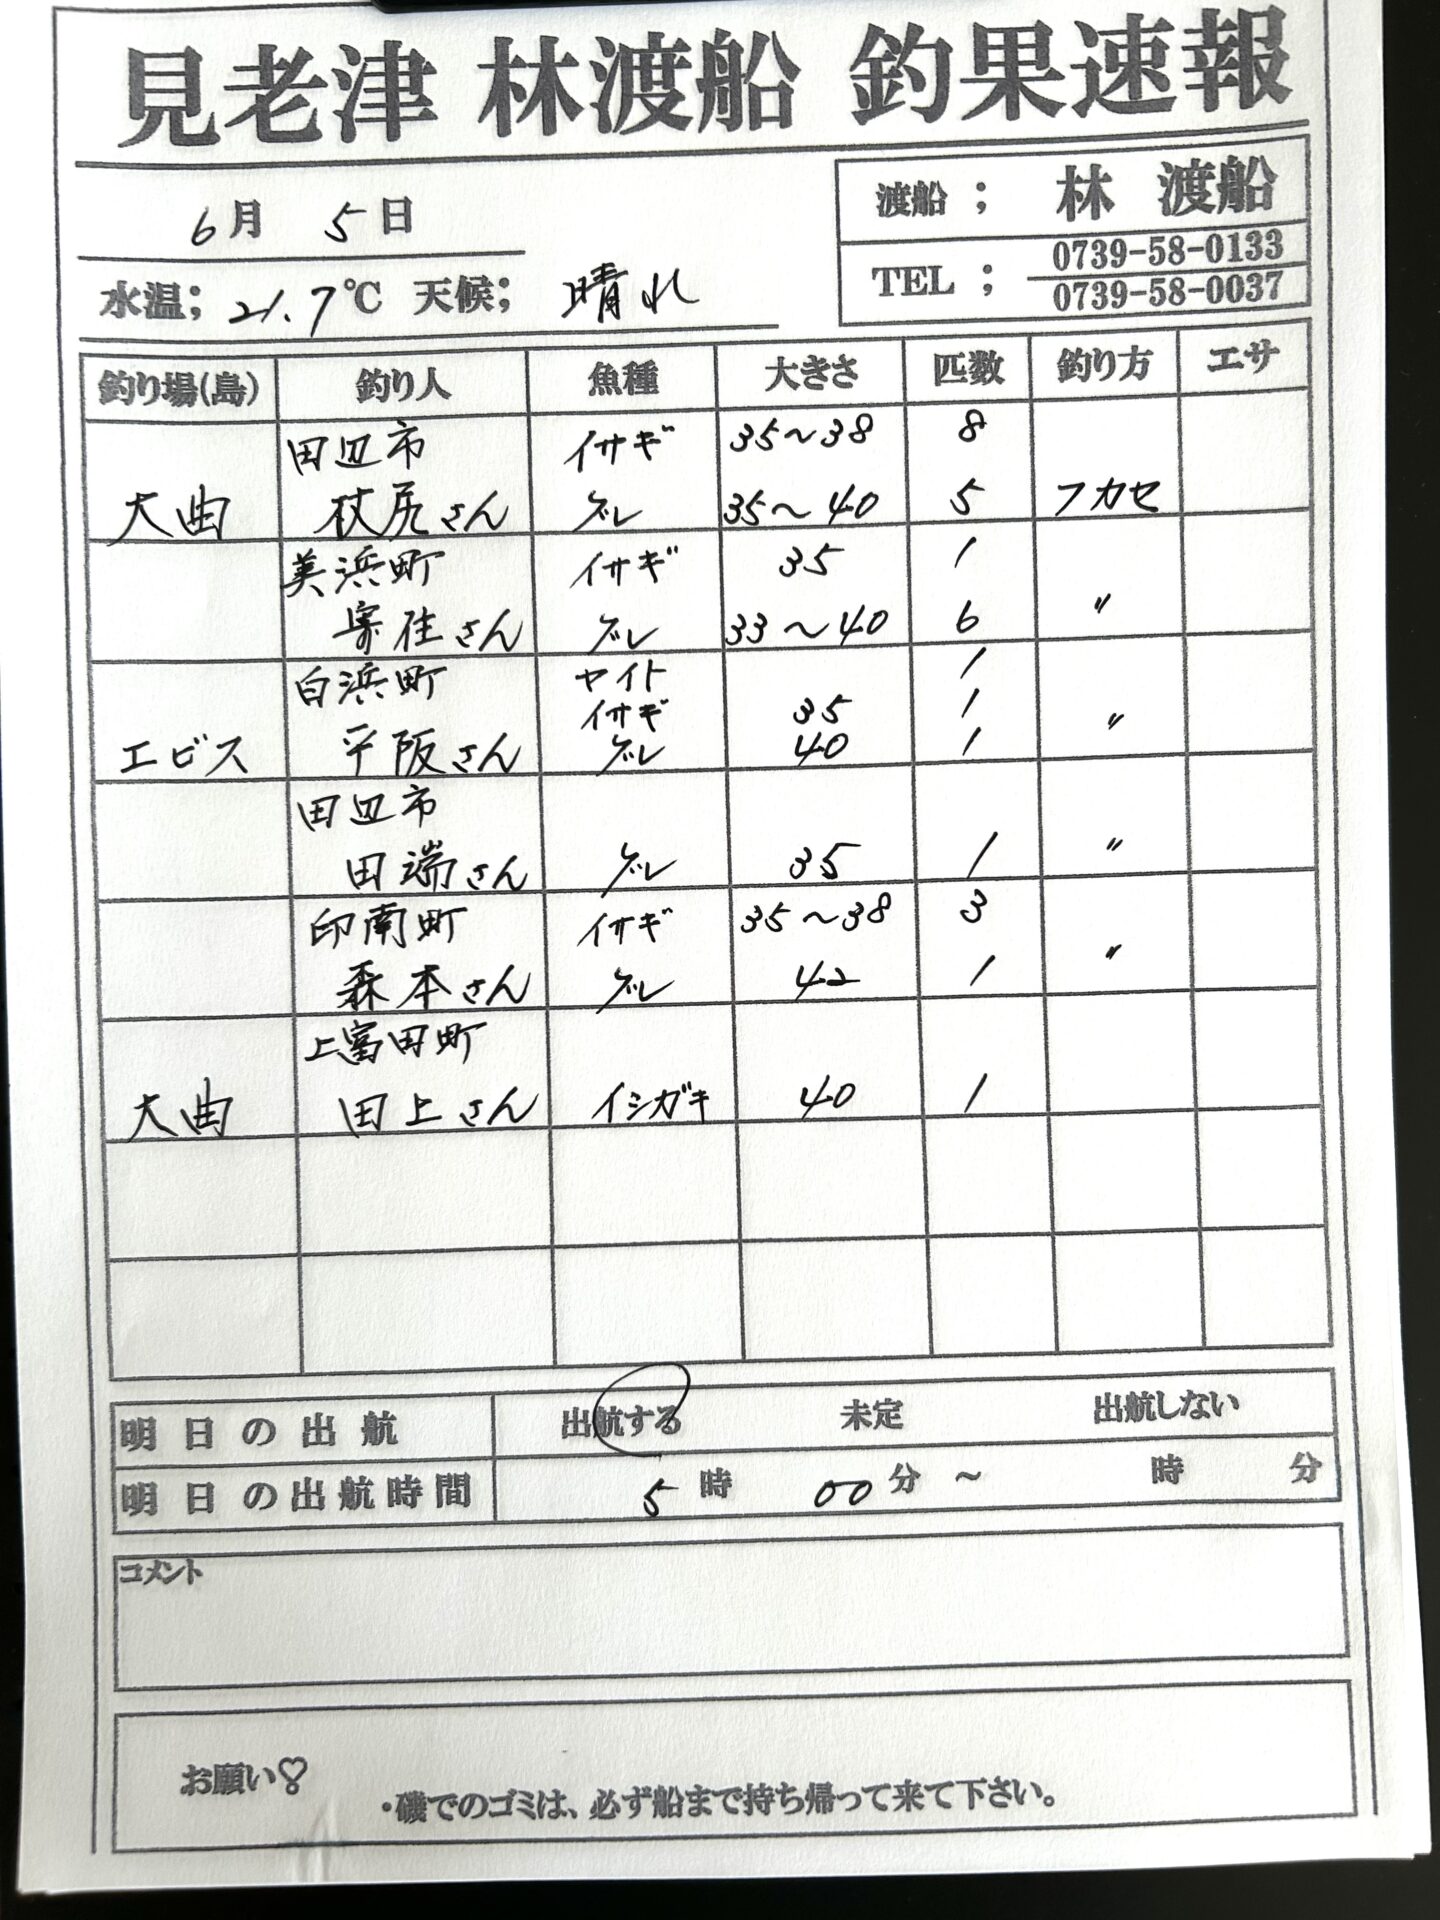 見老津 林渡船 釣果速報
6月 5日
渡船 ; 林 渡船
TEL ; 0739-58-0133
0739-58-0037
水温; 21.7℃ 天候; 晴れ
釣り場(島) 釣り人 魚種 大きさ 匹数 釣り方 エサ
田辺市 イサギ 35〜38 8
大曲 杖尻さん グレ 35〜40 5 フカセ
美浜町 イサギ 35 1
寄住さん グレ 33〜40 6 〃
白浜町 ヤイト 1
イサギ 35 1
エビス 平阪さん グレ 40 1 〃
田辺市
田端さん グレ 35 1 〃
印南町 イサギ 35〜38 3
森本さん グレ 42 1 〃
上富田町
大曲 田上さん イシガキ 40 1
明日の出航 出航する 未定 出航しない
明日の出航時間 5時 00分 〜 時 分
コメント
お願い
・磯でのゴミは、必ず船まで持ち帰って来て下さい。